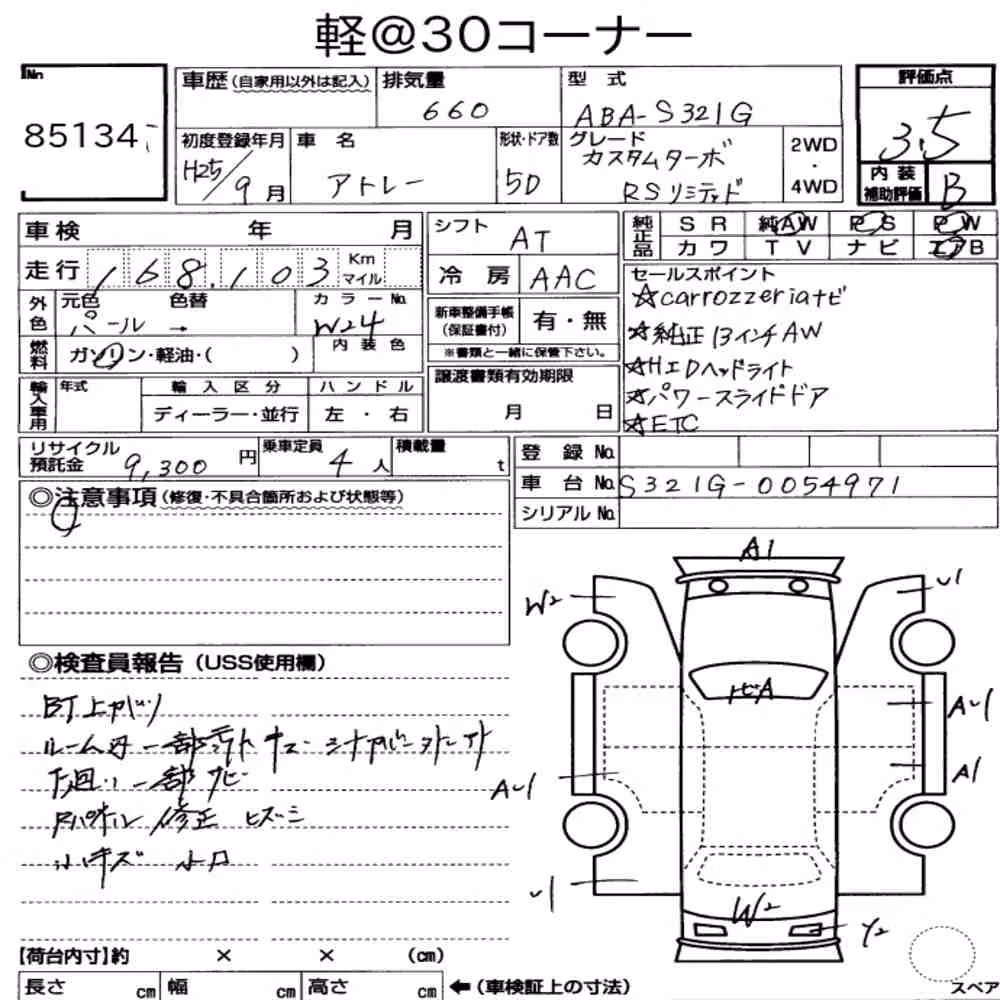 軽@30コーナー
No.
85134
車歴(自家用以外は記入)
排気量
660
型 式
ABA-S321G
評価点
3.5
初度登録年月
H25/9月
車 名
アトレー
形状・ドア数
5D
グレード
カスタムターボ
RSリミテッド
2WD
・
4WD
内装
補助評価
B
車検 年 月
シフト
AT
純正品
SR 純AW PS PW
カワ TV ナビ エアB
走行 168,103 Km マイル
冷房 AAC
セールスポイント
☆carrozzeriaナビ
☆純正13インチAW
☆HIDヘッドライト
☆パワースライドドア
☆ETC
外色
元色 色替
パール →
カラーNo.
W24
新車整備手帳
(保証書付)
有・無
※書類と一緒に保管下さい。
燃料
ガソリン・軽油・( )
内装色
譲渡書類有効期限
月 日
輸入車用
年式
輸入区分
ディーラー・並行
ハンドル
左 ・ 右
リサイクル
預託金 9,300円
乗車定員
4人
積載量
t
登録No.
車台No. S321G-0054971
シリアルNo.
◎注意事項(修復・不具合箇所および状態等)
◎検査員報告(USS使用欄)
一部
下廻り一部サビ
修正
小キズ
A1
W2
U1
A1
W2
Y2
【荷台内寸】約 × × (cm)
長さ cm 幅 cm 高さ cm ←(車検証上の寸法)
スペア